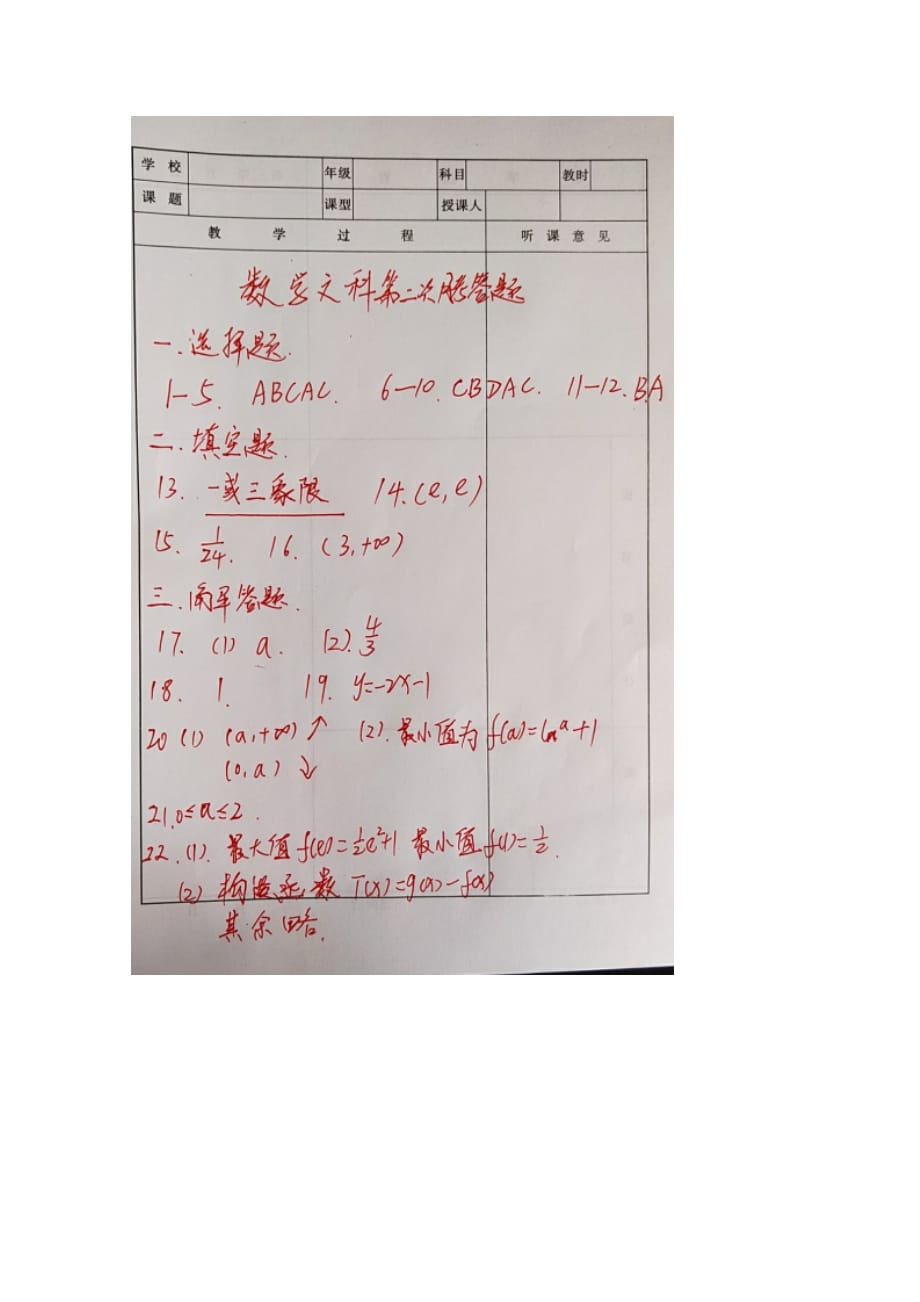 学校 年级 科目 教时
课题 课型 授课人
教学过程 听课意见
数学文科第二次月考答题
一.选择题.
1-5. ABCAC. 6-10. CBDAC. 11-12. BA
二.填空题.
13. 一或三象限 14. (e,e)
15. 1/24. 16. (3,+∞)
三.解答题.
17. (1) a. (2). 4/3
18. 1. 19. y=-2x-1
20 (1) (a,+∞)↑ (2). 最小值为 f(a)=lna+1
(0,a)↓
21. 0≤a≤2.
22. (1). 最大值 f(e)=1/2e²+1 最小值 f(1)=1/2.
(2) 构造函数 T(x)=g(x)-f(x)
其余略.